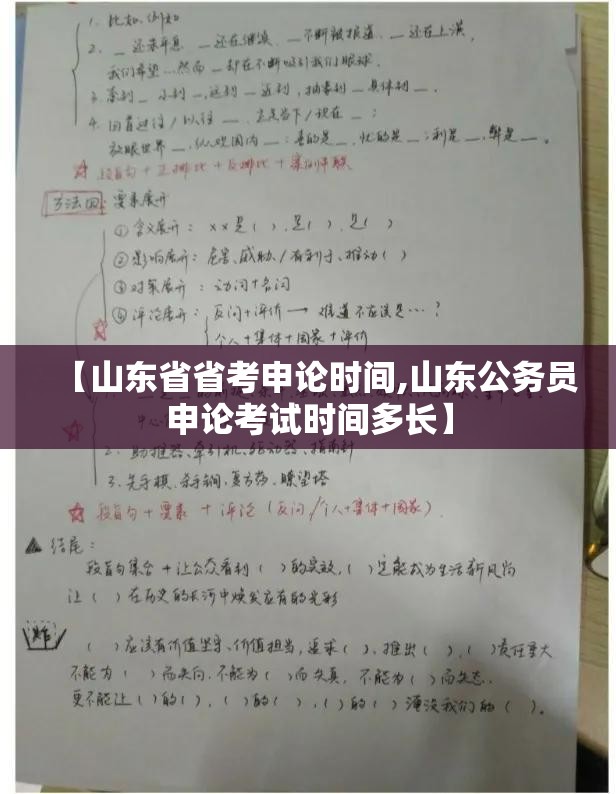 1. 比如、例如
2. _还未平息 _还在继续、_不断被报道、_还在上演,
我们希望…然而_却在不断吸引我们眼球.
3. 拿到_ 小到_,远到_近到_,抽象到_具体到_.
4. 回首过往/以往_,立足当下/现在_;
放眼世界_,纵观国内_;喜的是_,忧的是_;利是_,弊是_.
段首句+正排比+反排比+案例串联
方法四: 要素展开
①含义展开: xx是( ).是( ).是( )
②影响展开: 危害、威胁/有利于、推动( )
③对策展开: 动词+名词
④评论展开: 反问+评价→ 难道不应该是…?
个人+集体+国家+评价
【山东省省考申论时间,山东公务员
申论考试时间多长】
2. 助推器、牵引机、驱动器、指南针
3. 先手棋、杀手锏、复方药、瞭望塔
段首句+要素+评论(反问/个人+集体+国家)
结尾:
段首句集合+让公众看到( )的实效,( )定能成为生活新风尚
让( )在历史的长河中焕发应有的光彩
( )应该有价值坚守、价值担当,追求( )、推出( ),( )责任重大
不能为( )而失向、不能为( )而失真、不能为( )而失态.
更不能让( )的( ),( )的( ),( )的( )淹没我们的( )。